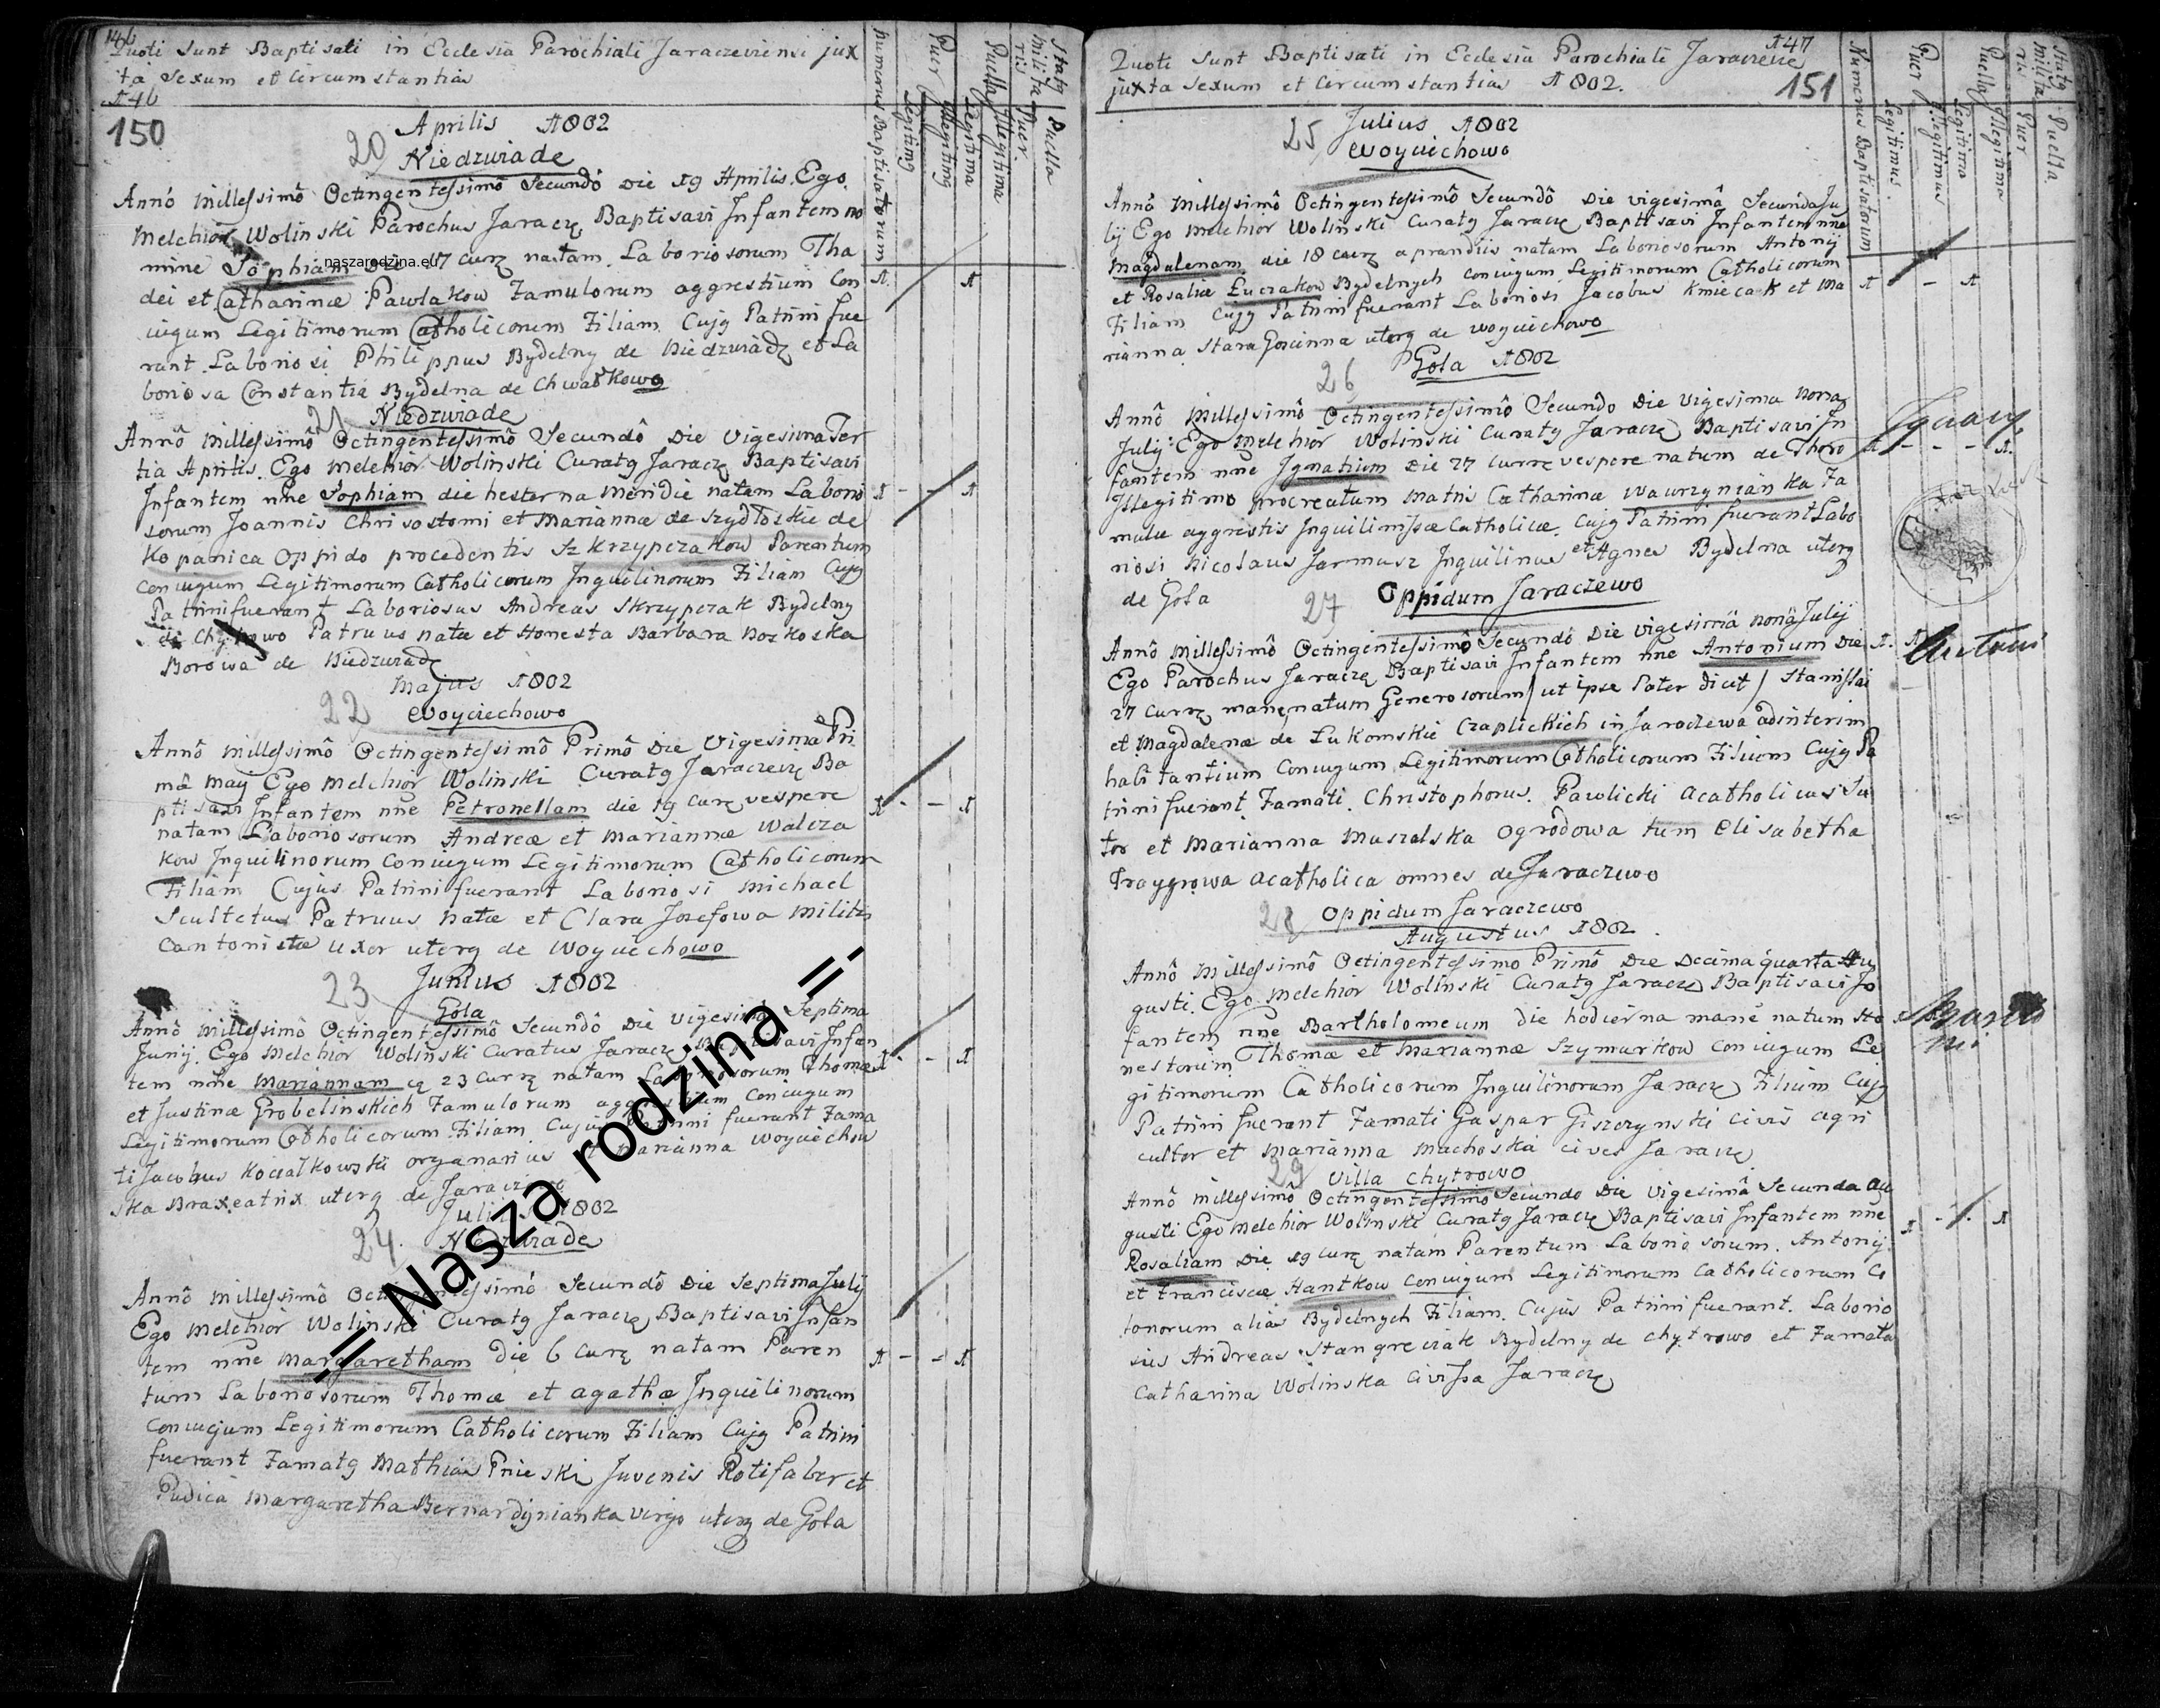 146
Quoti Sunt Baptisati in Ecclesia Parochiali Jaraczeviensi jux
ta Sexum et Circumstantias
146
150
Numerus Baptisatorum
Puer Legitimg
Illegitimg
Puella Legitima
Illegitima
Statg Militaris
Puer.
Puella
20
Aprilis 1802
Niedzwiade
Annô Millessimô Octingentessimô Secundô Die 19 Aprilis. Ego
Melchior Wolinski Parochus Jaracz. Baptisavi Infantem no
mine Sophiam Die 17 curr. natam. Laboriosorum Tha
dei et Catharinæ Pawlakow Famulorum aggrestium Con
iugum Legitimorum Catholicorum Filiam. Cujg Patrini fue
rant. Laboriosi Philippus Bydelny de Niedzwiadz et La
boriosa Constantia Bydelna de Chwałkowo
21 Niedzwiade
Annô Millessimô Octingentessimô Secundô Die Vigesima Ter
tia Aprilis. Ego Melchior Wolinski Curatg Jaracz Baptisavi
Infantem nne Sophiam die hesterna Meridie natam Laborio
sorum Joannis Chrisostomi et Mariannæ de Szydłoskie de
Kopanica Oppido procedentis Szkrzypczakow Parentum
Coniugum Legitimorum Catholicorum Inquilinorum Filiam Cujg
Patrini fuerant Laboriosus Andreas Skrzypczak Bydelny
de Chytrowo Patruus natæ et Honesta Barbara Noskoska
Borowa de Niedzwiadz
Majus 1802
22 Woyciechowo
Annô Millessimô Octingentessimô Primô Die Vigesima Pri
mâ May Ego Melchior Wolinski Curatg Jaraczew Ba
ptisavi Infantem nne Petronellam die 19 curr vespere
natam Laboriosorum Andreæ et Mariannæ Walcza
kow Inquilinorum Coniugum Legitimorum Catholicorum
Filiam Cujus Patrini fuerant Laboriosi Michael
Scultetus Patruus Natæ et Clara Josefowa Militis
Cantonistæ Uxor uterq de Woyciechowo
23 Junius 1802
Gola
Annô Millessimô Octingentessimô Secundô Die Vigesima Septima
Junij. Ego Melchior Wolinski Curatus Jaracz Baptisavi Infan
tem nne Mariannam 23 Curr natam Laboriosorum Thomæ
et Justinæ Grobelinskich Famulorum aggrestium Coniugum
Legitimorum Catholicorum Filiam Cujus Patrini fuerant Fama
ti Jacobus Kociałkowski organarius et Marianna Woyciechow
ska Braxeatrix uterq de Jaraczewo
Julius 1802
24. Niedzwiade
Annô Millessimô Octingentessimô Secundô Die Septima Julij
Ego Melchior Wolinski Curatg Jaracz Baptisavi Infan
tem nne Margaretham die 6 Curr natam Paren
tum Laboriosorum Thomæ et Agathæ Inquilinorum
Coniugum Legitimorum Catholicorum Filiam Cujg Patrini
fuerant Famatg Mathias Juvenis Rotifaber et
Pudica Margaretha Bernardynianka Virgo uterq de Gola
147
Quoti Sunt Baptisati in Ecclesia Parochiali Jaraczewi
juxta Sexum et Circumstantias 1802.
151
Numerus Baptisatorum
Puer Legitimus.
Illegitimus
Puella Legitima
Illegitima
Statg Militaris
Puer
Puella
25 Julius 1802
Woyciechowo
Annô Millessimô Octingentessimô Secundô Die Vigesimâ Secunda Ju
lij Ego Melchior Wolinski Curatg Jaracz Baptisavi Infantem nne
Magdalenam die 18 curr a prandiis natam Laboriosorum Antonij
et Rosaliæ Łuczakow Bydelnych Coniugum Legitimorum Catholicorum
Filiam Cujg Patrini fuerant Laboriosi Jacobus Kmiecak et Ma
rianna Stara Goscinna uterq de Woyciechowo
26 Gola 1802
Annô Millessimô Octingentessimô Secundo Die Vigesima Nona
Julij Ego Melchior Wolinski Curatg Jaracz Baptisavi In
fantem nne Ignatium Die 27 Curr vespere natum de Thoro
Illegitimo procreatum Matris Catharinæ Wawrzynianka Fa
mulæ aggrestis Inquilinissæ Catholicæ. Cujg Patrini fuerant Labo
riosi Nicolaus Jarmusz Inquilinus et Agnes Bydelna uterq
de Gola
Ignacy
27 Oppidum Jaraczewo
Annô Millessimô Octingentessimô Secundô Die Vigesimâ Nonâ Julij
Ego Parochus Jaracz Baptisavi Infantem nne Antonium Die
27 Curr mane natum Generosorum / ut ipse Pater dicit / Stanislai
et Magdalenæ de Łukomskie Czaplickich in Jaraczewa adinterim
habitantium Coniugum Legitimorum Catholicorum Filium Cujg Pa
trini fuerant Famati. Christophorus. Pawlicki Acatholicus Su
tor et Marianna Muszalska Ogrodowa tum Elisabetha
acatholica omnes de Jaraczewo
Antoni
28 Oppidum Jaraczewo
Augustus 1802.
Annô Millessimô Octingentessimo Primô Die Decima quarta Au
gusti. Ego Melchior Wolinski Curatg Jaracz Baptisavi In
fantem nne Bartholomeum die hodierna mane natum Ho
nestorum Thomæ et Mariannæ Szymurkow Coniugum Le
gitimorum Catholicorum Inquilinorum Jaracz Filium Cujg
Patrini fuerant Famati Gaspar Giszczynski Civis agri
cultor et Marianna Machoska Cives Jaracz
29 Villa Chytrowo
Annô Millessimô Octingentessimô Secundo Die Vigesimâ Secunda Au
gusti Ego Melchior Wolinski Curatg Jaracz Baptisavi Infantem nne
Rosaliam Die 19 curr natam Parentum Laboriosorum. Antonij
et Franciscæ Hantkow Coniugum Legitimorum Catholicorum Co
lonorum alias Bydelnych Filiam. Cujus Patrini fuerant. Laborio
sus Andreas Stangreciak Bydelny de Chytrowo et Famata
Catharina Wolinska Civissa Jaracz
naszarodzina.eu
-:= Nasza rodzina =:-